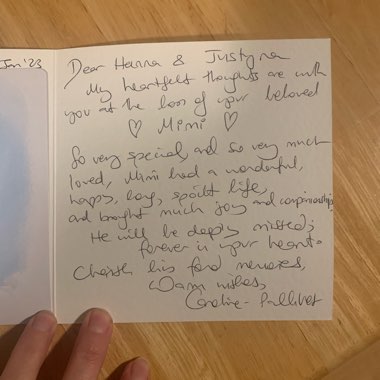 Jan '23
Dear Hanna & Justyna
My heartfelt thoughts are with
you at the loss of your beloved
♡ Mimi ♡
So very special, and so very much
loved, Mimi had a wonderful,
happy, long, spoilt life,
and brought much joy and companionship
He will be deeply missed;
forever in your heart.
Cherish his fond memories,
Warm wishes,
Caroline - Pallivet